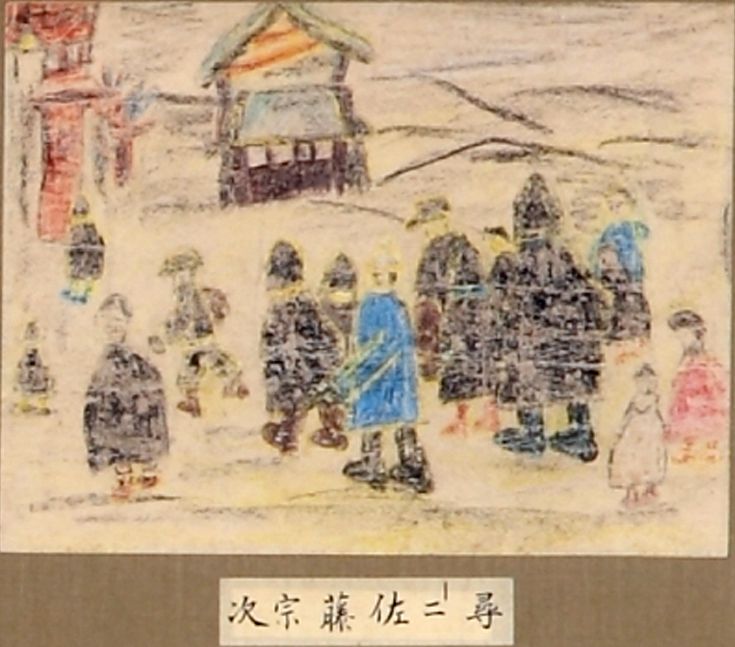 尋二佐藤宗次